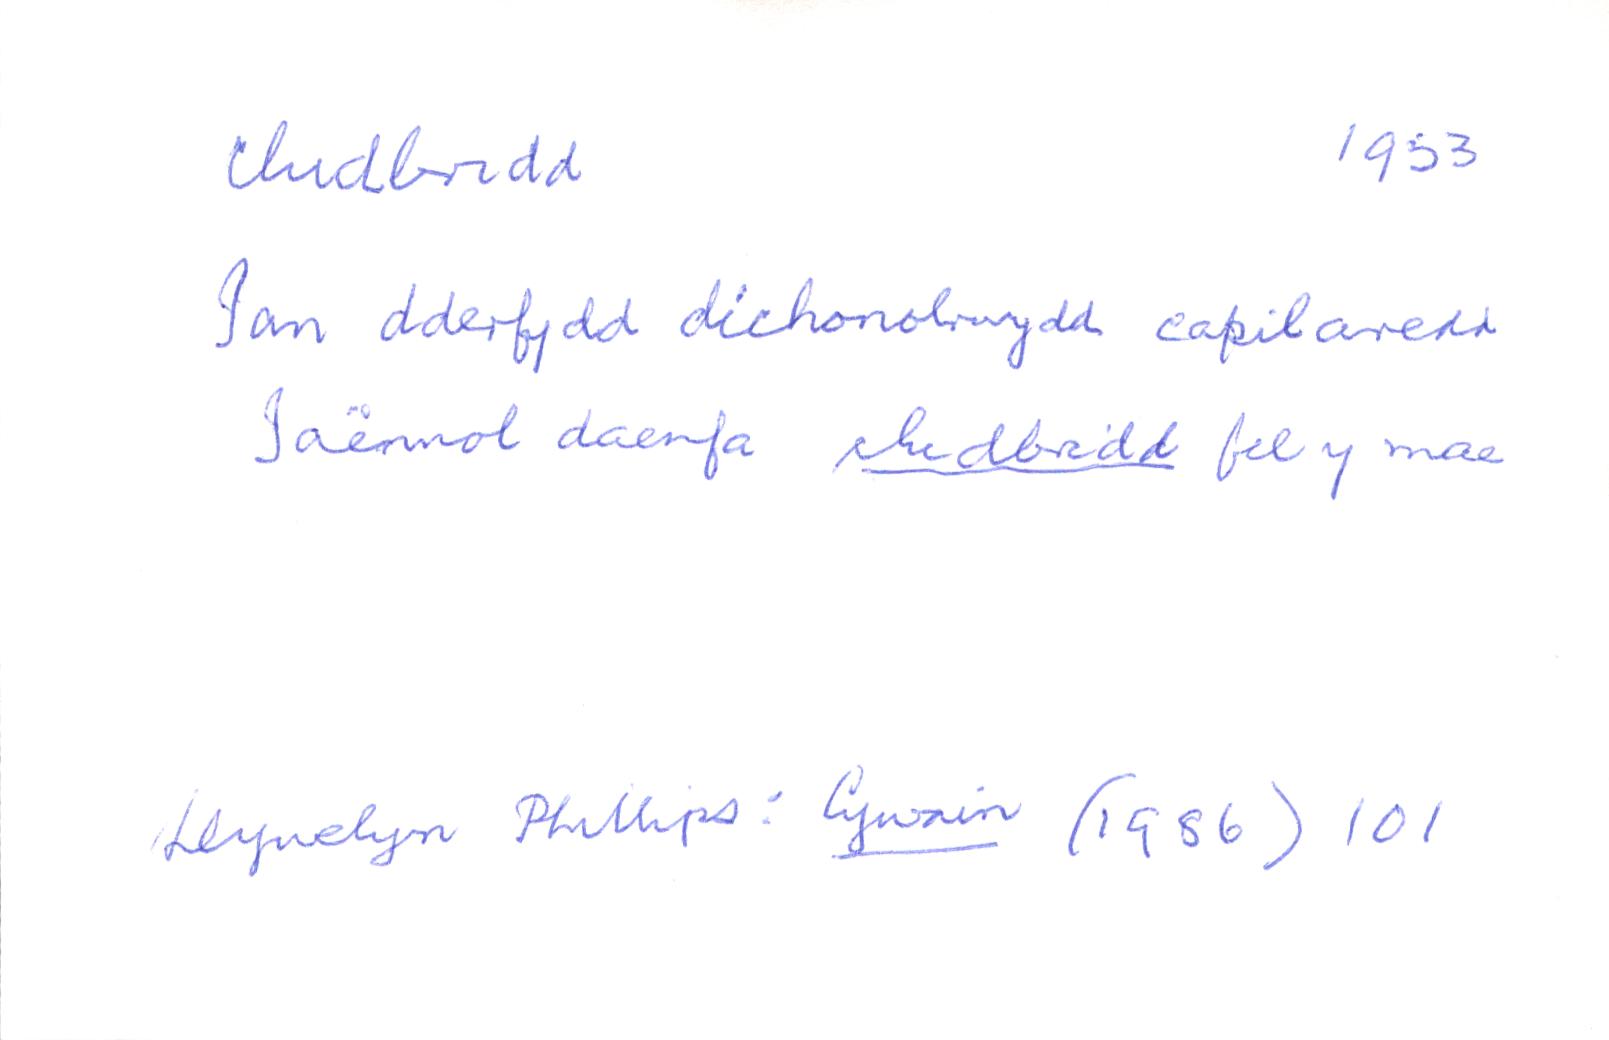 cludbridd 1953
Pan dderfydd dichonolrwydd capilaredd
haënnol daenfa cludbridd fel y mae
Llywelyn Phillips: Cywain (1986) 101